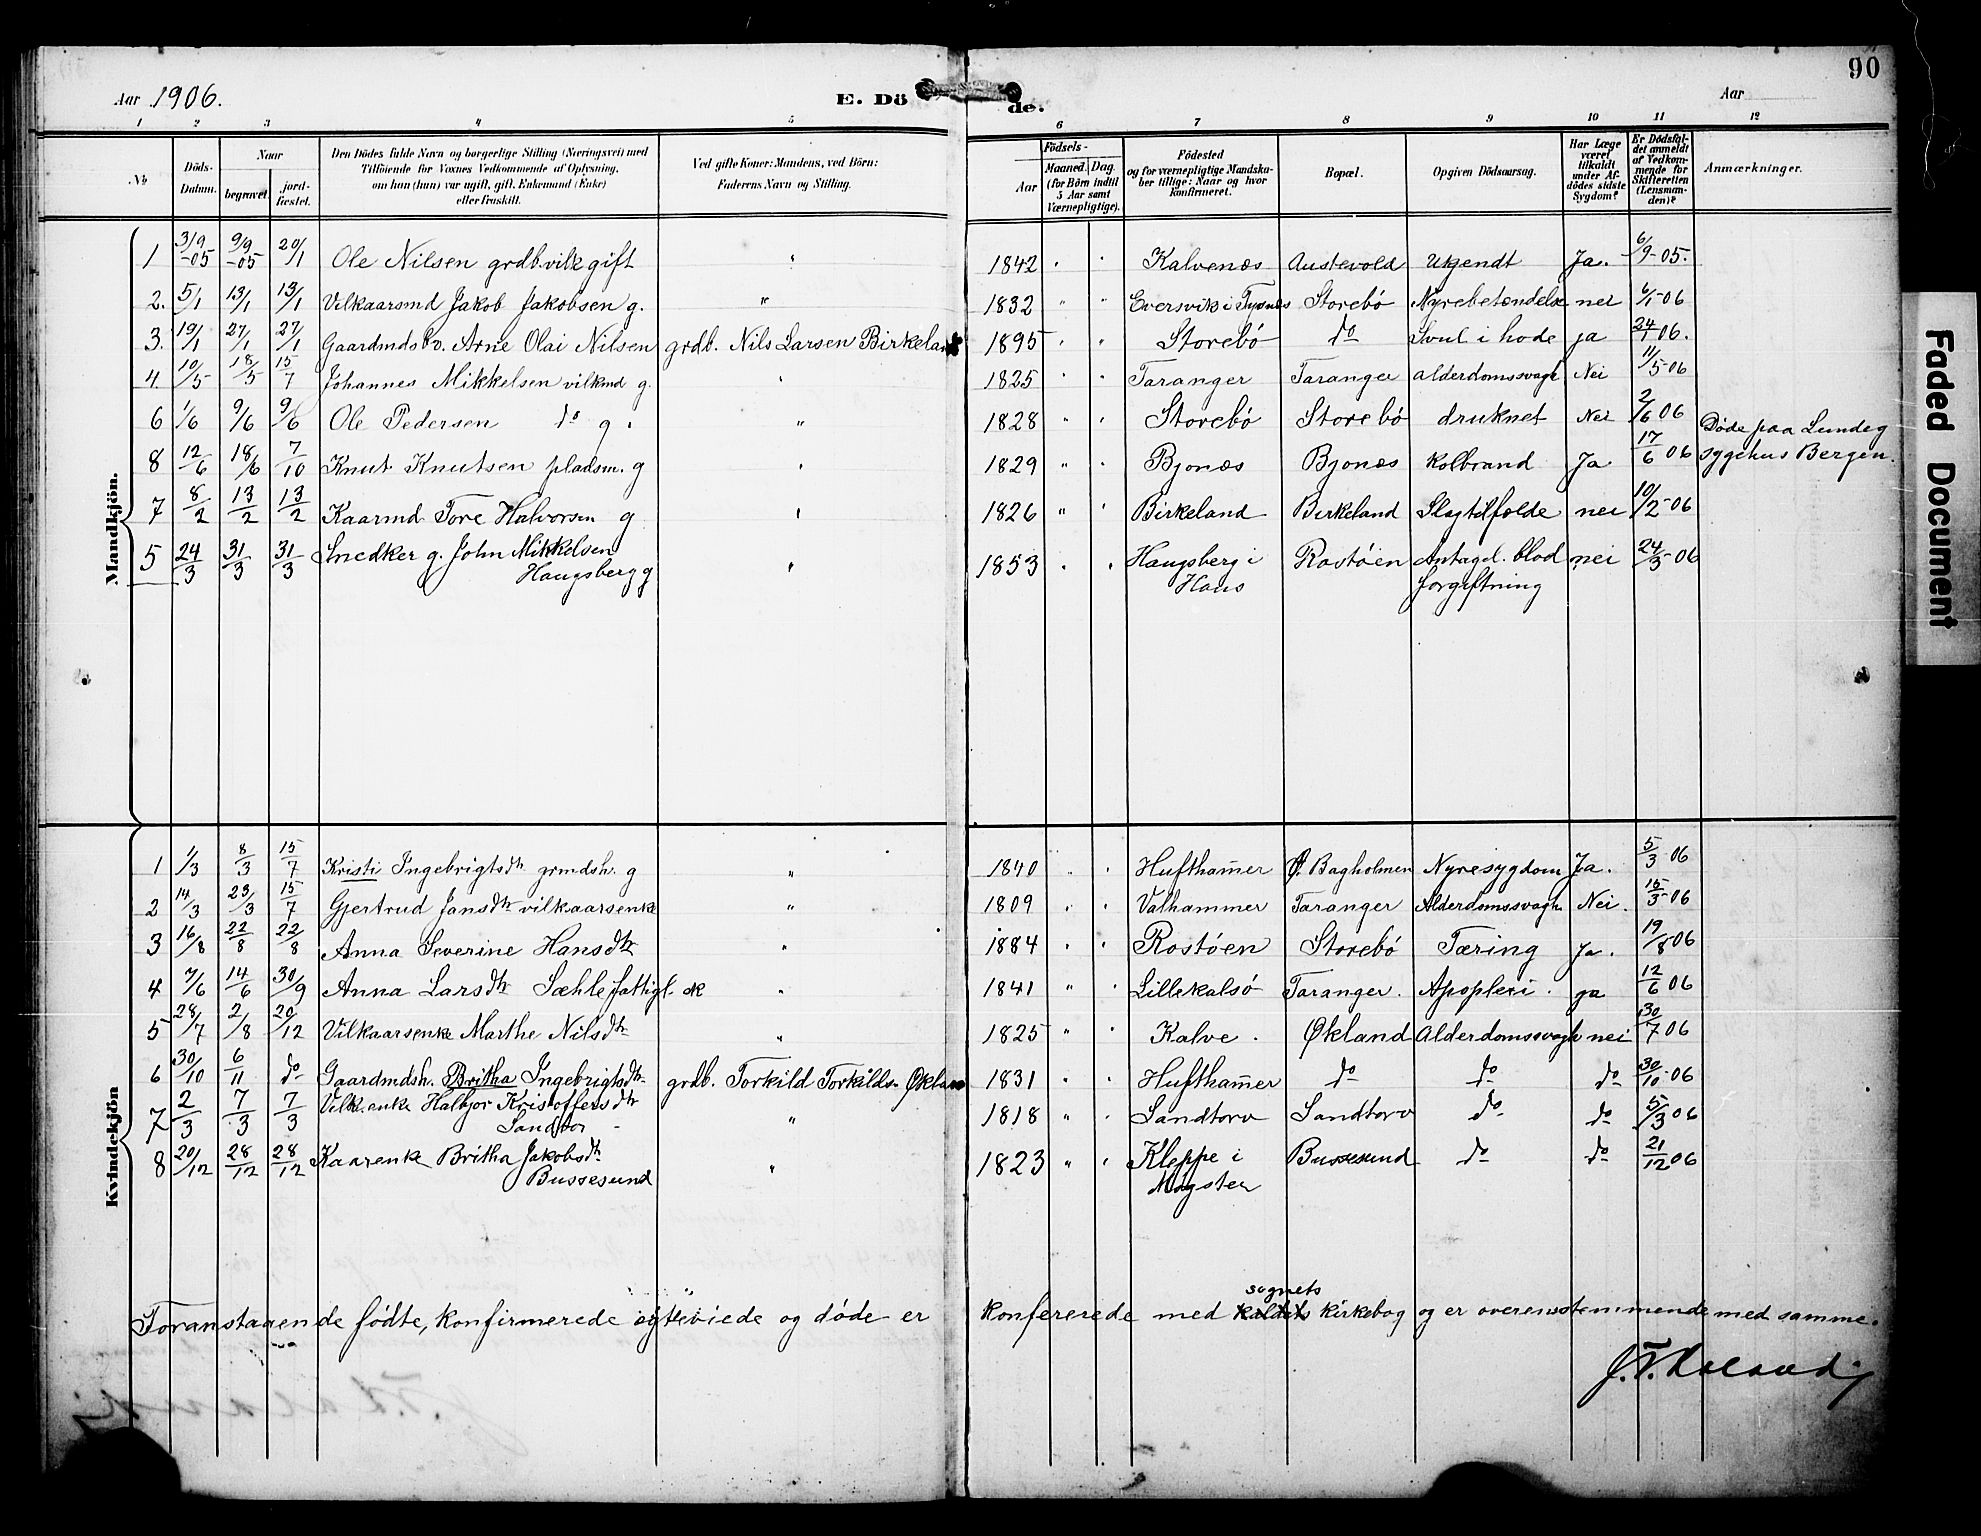 90
Aar 1906.
E. Dö de.
Aar
1 2 3 4 5 6 7 8 9 10 11 12
No.
Döds-Datum.
Naar
begravet.
jord-fæstet.
Den Dödes fulde Navn og borgerlige Stilling (Næringsvei) med
Tilföiende for Voxnes Vedkommende af Oplysning,
om han (hun) var ugift, gift, Enkemand (Enke)
eller fraskilt.
Ved gifte Koner: Mandens, ved Börn:
Faderens Navn og Stilling.
Födsels-
Aar
Maaned. Dag.
(for Börn indtil
5 Aar samt
Værnepligtige).
Födested
og for værnepligtige Mandska-
ber tillige: Naar og hvor
konfirmeret.
Bopæl.
Opgiven Dödsaarsag.
Har Læge
været
tilkaldt
under Af-
dödes sidste
Sygdom?
Er Dödsfal-
det anmeldt
af Vedkom-
mende for
Skifteretten
(Lensman-
den)?
Anmærkninger.
Mandkjön.
1 31/9 -05 9/9 -05 20/1 Ole Nilsen grdb. vilk gift " 1842 " " Kalvenæs Austevold Ukjendt Ja. 6/9-05.
2. 5/1 13/1 13/1 Vilkaarsmd Jakob Jakobsen g. " 1832 " " Eversvik i Tysnes Storebö Nyrebetendelse nei 6/1-06
3. 19/1 27/1 27/1 Gaardmds bv. Arne Olai Nilsen grdb. Nils Larsen Birkeland 1895 " " Storebö do Svul i hode ja 24/1 06.
4. 10/5 18/5 15/7 Johannes Mikkelsen vilkmd g. " 1825 " " Taranger Taranger Alderdomssvagh Nei 11/5-06
6 1/6 9/6 9/6 Ole Pedersen do g. " 1828 " " Storebö Storebö druknet Nei 2/6 06
8 12/6 18/6 7/10 Knut Knutsen pladsm. g " 1829 " " Bjonæs Bjonæs Kolbrand Ja 17/6 06 Døde paa Lundeg
sygehus Bergen.
7 8/2 13/2 13/2 Kaarmd Tore Halvorsen g " 1826 " " Birkeland Birkeland Slagtilfolde nei 10/2-06
5 24/3 31/3 31/3 Snedker g. John Mikkelsen
Haugsberg g " 1853 " " Haugsberg i
Haus Rostöen Antagel. blod
forgiftning nei 24/3-06
Kvindekjön
1 1/3 8/3 15/7 Kristi Ingebrigtsdtr grmdsh. g " 1840 " " Hufthammer Ø. Bagholmen Nyresygdom Ja. 5/3 06
2 14/3 23/3 15/7 Gjertrud Jansdtr vilkaarsenke " 1809 " " Valhammer Taranger Alderdomssvagh Nei. 15/3-06
3 16/8 22/8 22/8 Anna Severine Hansdtr " 1884 " " Rostöen Storebö Tæring Ja. 19/8 06
4 7/6 14/6 30/9 Anna Larsdtr Sæhle fattigl. " 1841 " " Lillekalsö Taranger. Apoplexi. ja 12/6 06
5 28/7 2/8 20/12 Vilkaarsenke Marthe Nilsdtr " 1825 " " Kalve. Økland Alderdomssvagh nei 30/7 06
6 30/10 6/11 do Gaardmdsh. Britha Ingebrigtsdtr grdb. Torkild Torkilds. Økland 1831 " " Hufthammer do do do 30/10-06
7 2/3 7/3 7/3 Vilk.enke Halbjor Kristoffersdtr
Sandtor " 1818 " " Sandtorv Sandtorv do do 5/3 06
8 20/12 28/12 28/12 Kaarenke Britha Jakobsdtr
Bussesund " 1823 " " Kleppe i
Møgster Bussesund do do 21/12 06
Foranstaaende födte, konfirmerede egteviede og döde er konfererede med sognets kirkebog og er overensstemmende med samme.
Faded Document